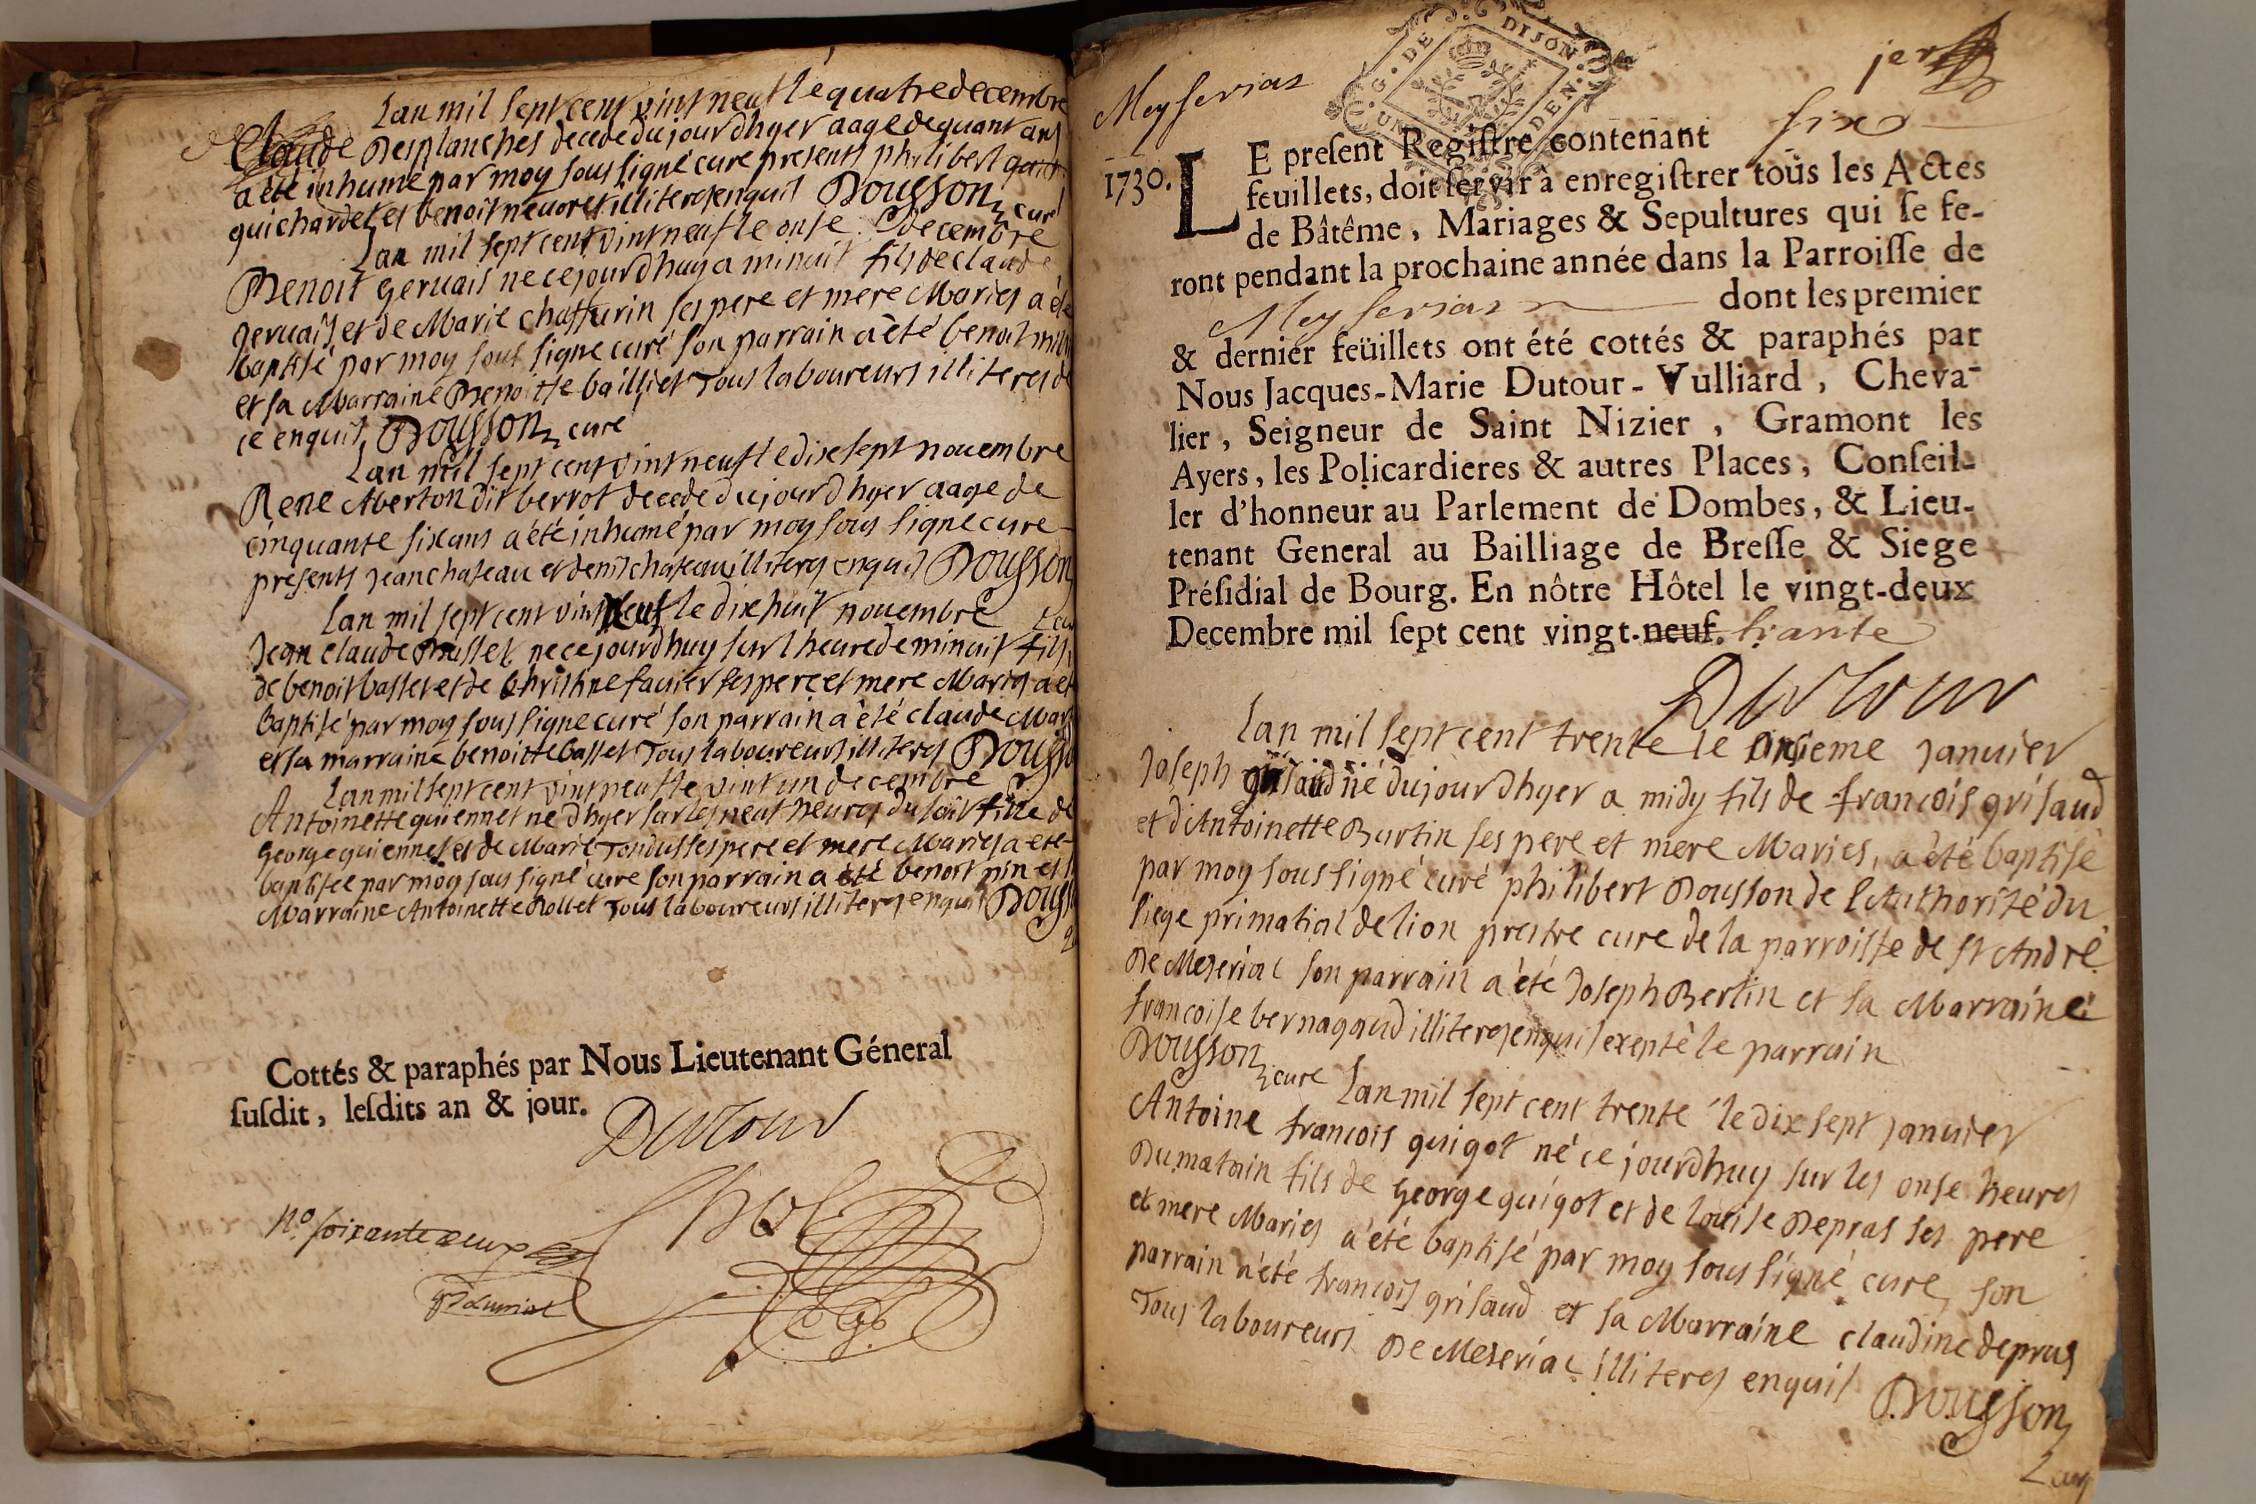 Lan mil sept cent vint neuf le quatre decembre
Claude Desplanches decede du jour dhyer aagé de quant ans
a été inhumé par moy sous signé curé presents philibert
guichardet et benoit illiteres enquis Dousson curé
Lan mil sept cent vint neuf le onse decembre
Benoit gervais né cejourdhuy a minuit fils de claude
gervais et de Marie chaffurin ses pere et mere Mariés a été
baptisé par moy sous signé curé son parrain a été benoit
et sa Marraine Benoitte bailliet Tous laboureurs illiteres de
ce enquis Dousson curé
Lan mil sept cent vint neuf le dix sept novembre
Rene Aberton dit berrot decede du jour dhyer aagé de
cinquante six ans a été inhumé par moy sous signé curé
presents jean chateau et denis chateau illiteres enquis Dousson
Lan mil sept cent vint neuf le dix huit novembre
Jean claude Basset né cejourdhuy sur lheure de minuit fils
de benoit basset et de Christine favier ses pere et mere Mariés a été
Baptisé par moy sous signé curé son parrain a été claude
et sa marraine benoitte basset Tous laboureurs illiteres Dousson
Lan mil sept cent vint neuf le vint un decembre
Antoinette guiennet né dhyer sur les neuf heures du soir fille de
George guiennet et de Marie Tondus ses pere et mere Mariés a été
baptisée par moy sous signé curé son parrain a été benoit pin et
Marraine Antoinette Rollet Tous laboureurs illiteres enquis Dousson
Cottés & paraphés par Nous Lieutenant Géneral
susdit, lesdits an & jour.
Dutour
No soixante deux
Meyseriat
1730.
G. DE DIJON
six
LE present Registre contenant
feuillets, doit servir à enregistrer tous les Actes
de Bâtême, Mariages & Sepultures qui se fe-
ront pendant la prochaine année dans la Parroisse de
Meyseriat dont les premier
& dernier feüillets ont été cottés & paraphés par
Nous Jacques-Marie Dutour-Vulliard, Cheva-
lier, Seigneur de Saint Nizier, Gramont les
Ayers, les Policardieres & autres Places, Conseil-
ler d'honneur au Parlement de Dombes, & Lieu-
tenant General au Bailliage de Bresse & Siege
Présidial de Bourg. En nôtre Hôtel le vingt-deux
Decembre mil sept cent vingt-neuf. trante
Dutour
Lan mil sept cent trente le onsieme janvier
Joseph grisaud né du jour dhyer a midy fils de francois grisaud
et dAntoinette Burtin ses pere et mere Mariés, a été baptisé
par moy sous signé curé philibert Dousson de lAuthorité du
siege primatial de lion prestre curé de la parroisse de st André
De Meseriac son parrain a été Joseph Bertin et sa Marraine
francoise bernagaud illiteres enquis exepté le parrain
Dousson curé
Lan mil sept cent trente le dix sept janvier
Antoine francois guigot né ce jourdhuy sur les onse heures
Du matain fils de George guigot et de louise Depras ses pere
et mere Mariés a été baptisé par moy sous signé curé, son
parrain a été francois grisaud et sa Marraine claudine depras
Tous laboureurs De Meseriac illiteres enquis Dousson
Lan